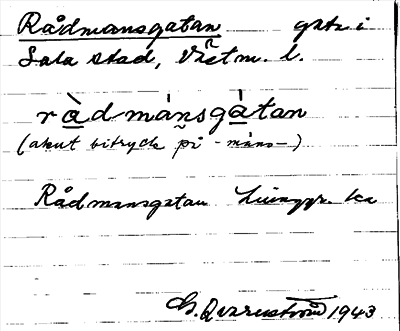 Rådmansgatan gata i
Sala stad, Västm. l.
ràdmánsgàtan
(akut bitryck på -máns-)
Rådmansgatan
G. Qvarnström 1943